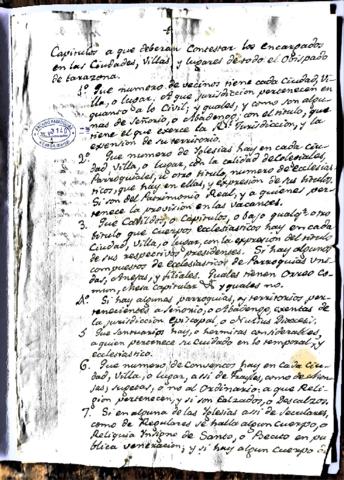 Capitulos a que deberan Contestar los encargados
en las Ciudades, Villas y lugares de todo el Obispado
de tarazona.
1.º Que numero de vecinos tiene cada Ciudad, Vi-
lla, o lugar, A que jurisdiccion pertenecen en
quanto a lo Civil; y quales, y como son algu-
nas de Señorio, o Abadengo, con el titulo, que
tiene el que exerce la Rl. Jurisdiccion, y la
extension de su territorio.
2.º Que numero de Iglesias hay en cada Ciu-
dad Villa o lugar, con la calidad de Colegiales,
Parroquiales, u otro titulo, numero de eclesias-
ticos, que hay en ellas, y expresion de sus titulos,
Si son del Patrimonio Real, y a quienes per-
tenece la provision en las vacantes.
3. Que Cabildos, o Capitulos, o bajo qualqr. otro
titulo que Cuerpos ecclesiasticos hay en cada
Ciudad, Villa, o lugar, con la expresion del titulo
de sus respectivos presidentes. Si hay algunos
compuestos de eclesiasticos de Parroquias Uni-
das, Anejas, y filiales. Quales tienen Coreo Co-
mun, Mesa Capitular & y quales no.
4.º Si hay algunas parroquias, o territorios per-
tenecientes a Señorio, o Abadengo exentas de
la juridiccion Episcopal, o Nullius Diocesi.
5. Que Santuarios hay, o hermitas considerables,
a quien pertenece su Cuidado en lo temporal, y
ecclesiastico.
6. Que numero, de Conventos hay en cada Ciu-
dad, Villa, o lugar, assi de frayles, como de Mon-
jas, sugetas, o no al Ordinario: a que Reli-
gion pertenecen, y si son Calzados, o Descalzos.
7.º Si en alguna de las Iglesias assi de Seculares,
como de Regulares se halla algun Cuerpo, o
Reliquia Insigne de Santo, o Beato en pu-
blica veneracion; y si hay algun Cuerpo o